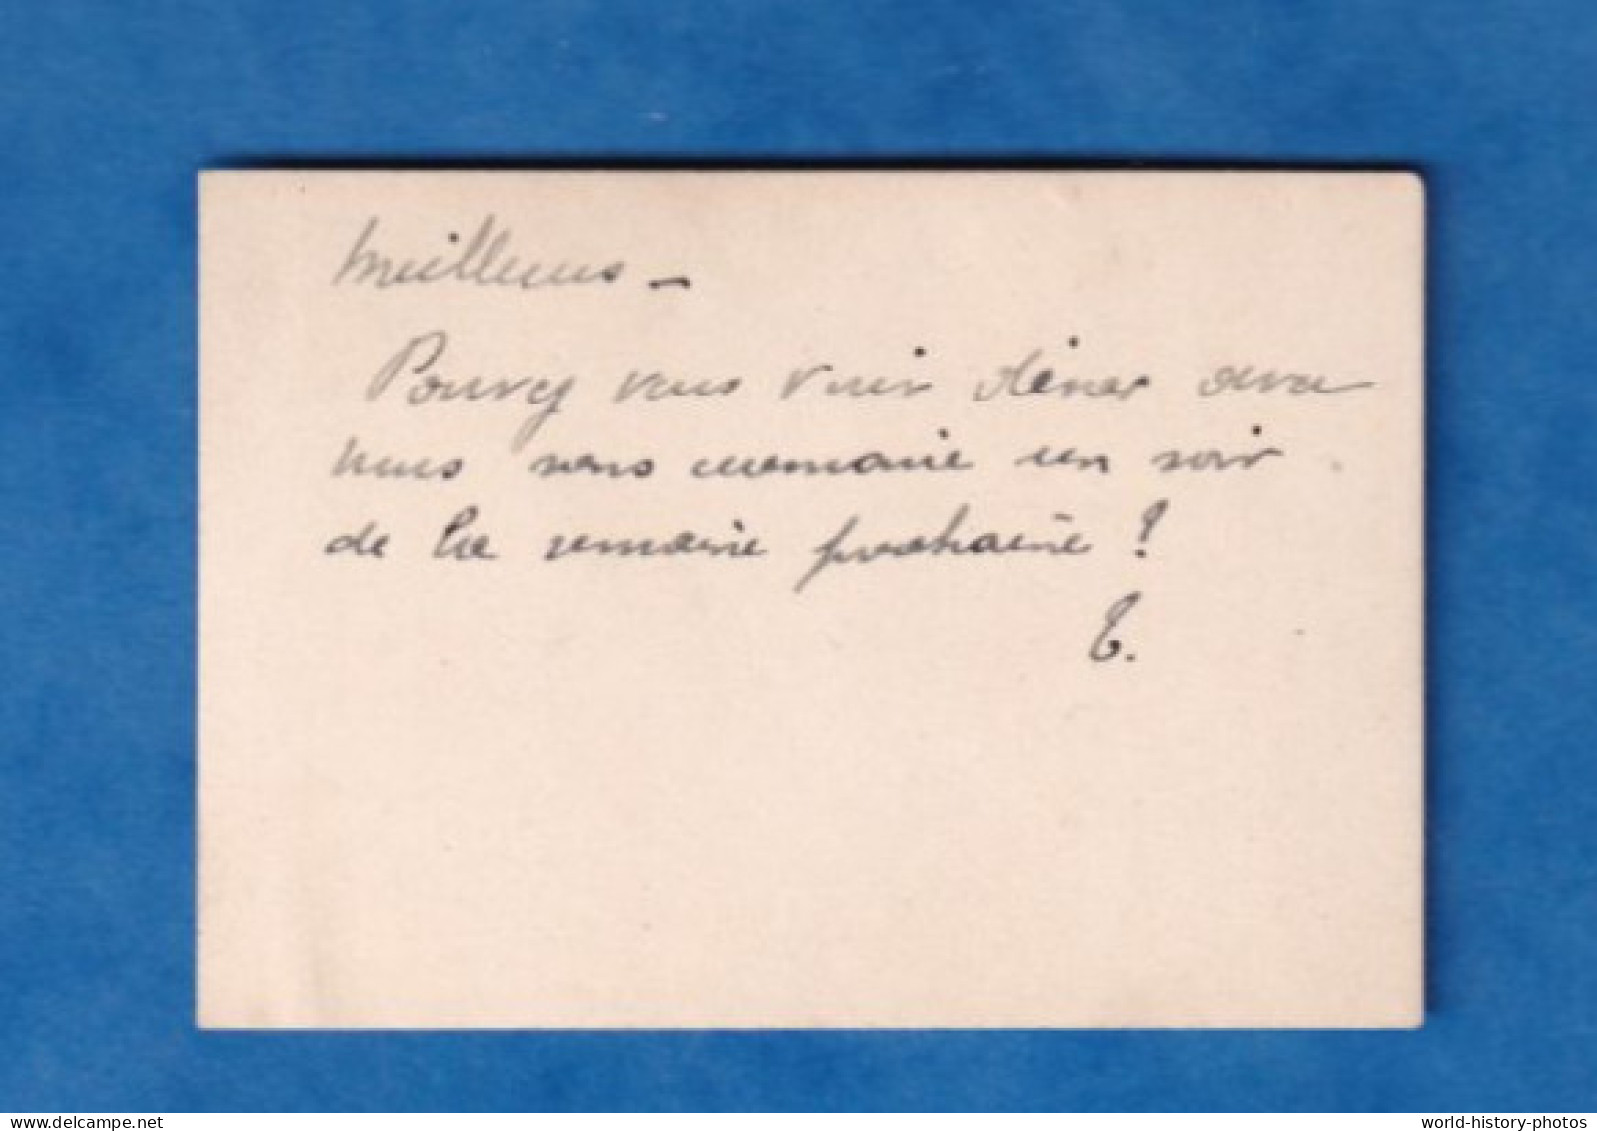 meilleurs –
Pouvez vous venir dîner avec
nous sans cérémonie un soir
de la semaine prochaine ?
T.
world-history-photos